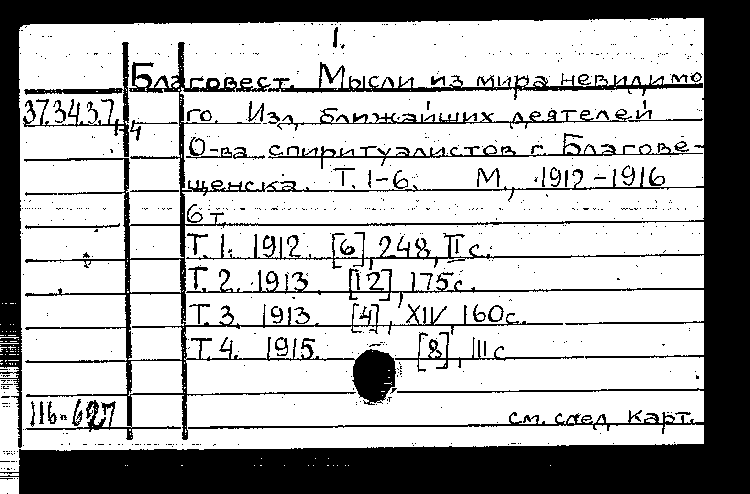 1.
Благовест. Мысли из мира невидимо
37.34.3.7 1-4 го. Изд. ближайших деятелей
О-ва спиритуалистов г. Благове-
щенска. Т. 1-6. М., 1912-1916
6 т.
Т. 1. 1912. [6], 248, II с.
Т. 2. 1913. [12], 175с.
Т. 3. 1913. [4], XIV, 160с.
Т. 4. 1915. [8], 111 с
116-627 см. след. карт.